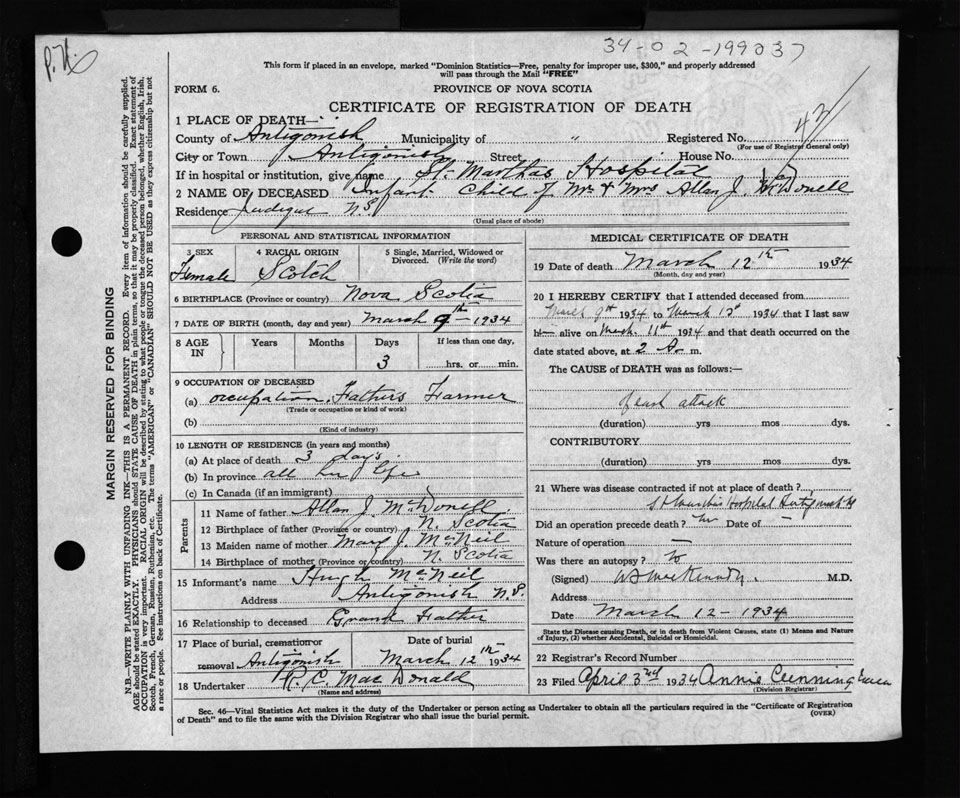 34-02-199037
P.H.
This form if placed in an envelope, marked "Dominion Statistics—Free, penalty for improper use, $300," and properly addressed
will pass through the Mail "FREE"
FORM 6. PROVINCE OF NOVA SCOTIA
CERTIFICATE OF REGISTRATION OF DEATH
1 PLACE OF DEATH—
County of Antigonish Municipality of " Registered No. 42
(For use of Registrar General only)
City or Town Antigonish Street House No.
If in hospital or institution, give name St. Marthas Hospital
2 NAME OF DECEASED Infant Child of Mr & Mrs Allan J. McDonell
Residence Judique N.S.
(Usual place of abode)
PERSONAL AND STATISTICAL INFORMATION
3 SEX 4 RACIAL ORIGIN 5 Single, Married, Widowed or
Divorced. (Write the word)
Female Scotch
6 BIRTHPLACE (Province or country) Nova Scotia
7 DATE OF BIRTH (month, day and year) March 9th 1934
8 AGE IN Years Months Days If less than one day,
3 hrs. or min.
9 OCCUPATION OF DECEASED
(a) occupation, Fathers Farmer
(Trade or occupation or kind of work)
(b)
(Kind of industry)
10 LENGTH OF RESIDENCE (in years and months)
(a) At place of death 3 days
(b) In province all her life
(c) In Canada (if an immigrant)
Parents
11 Name of father Allan J. McDonell
12 Birthplace of father (Province or country) N. Scotia
13 Maiden name of mother Mary J. McNeil
14 Birthplace of mother (Province or country) N. Scotia
15 Informant's name Hugh McNeil
Address Antigonish N.S.
16 Relationship to deceased Grand Father
17 Place of burial, cremation or Date of burial
removal Antigonish March 12th 1934
18 Undertaker R. C. MacDonald
(Name and address)
MEDICAL CERTIFICATE OF DEATH
19 Date of death March 12th 1934
(Month, day and year)
20 I HEREBY CERTIFY that I attended deceased from
March 9th 1934 to March 12th 1934 that I last saw
h alive on March 11th 1934 and that death occurred on
date stated above, at 2 A. m.
The CAUSE of DEATH was as follows:—
Heart attack
(duration) yrs mos dys.
CONTRIBUTORY
(duration) yrs mos dys.
21 Where was disease contracted if not at place of death?
St Martha's Hospital Antigonish
Did an operation precede death? No Date of —
Nature of operation —
Was there an autopsy? No
(Signed) M.D.
Address
Date March 12 - 1934
State the Disease causing Death, or in death from Violent Causes, state (1) Means and Nature
of Injury, (2) whether Accidental, Suicidal or Homicidal.
22 Registrar's Record Number
23 Filed April 3rd 1934 Annie Cunningham
(Division Registrar)
Sec. 46—Vital Statistics Act makes it the duty of the Undertaker or person acting as Undertaker to obtain all the particulars required in the "Certificate of Registration
of Death" and to file the same with the Division Registrar who shall issue the burial permit. (OVER)
MARGIN RESERVED FOR BINDING
N.B.—WRITE PLAINLY WITH UNFADING INK—THIS IS A PERMANENT RECORD. Every item of information should be carefully supplied.
AGE should be stated EXACTLY. PHYSICIANS should STATE CAUSE OF DEATH in plain terms, so that it may be properly classified. Exact statement of
OCCUPATION is very important. RACIAL ORIGIN will be described by stating to what people or tongue the deceased person belonged, whether English, Irish,
Scotch, French, German, Russian, Ruthenian, etc. The terms "AMERICAN" or "CANADIAN" SHOULD NOT BE USED as they express citizenship but not
a race or people. See instructions on back of Certificate.